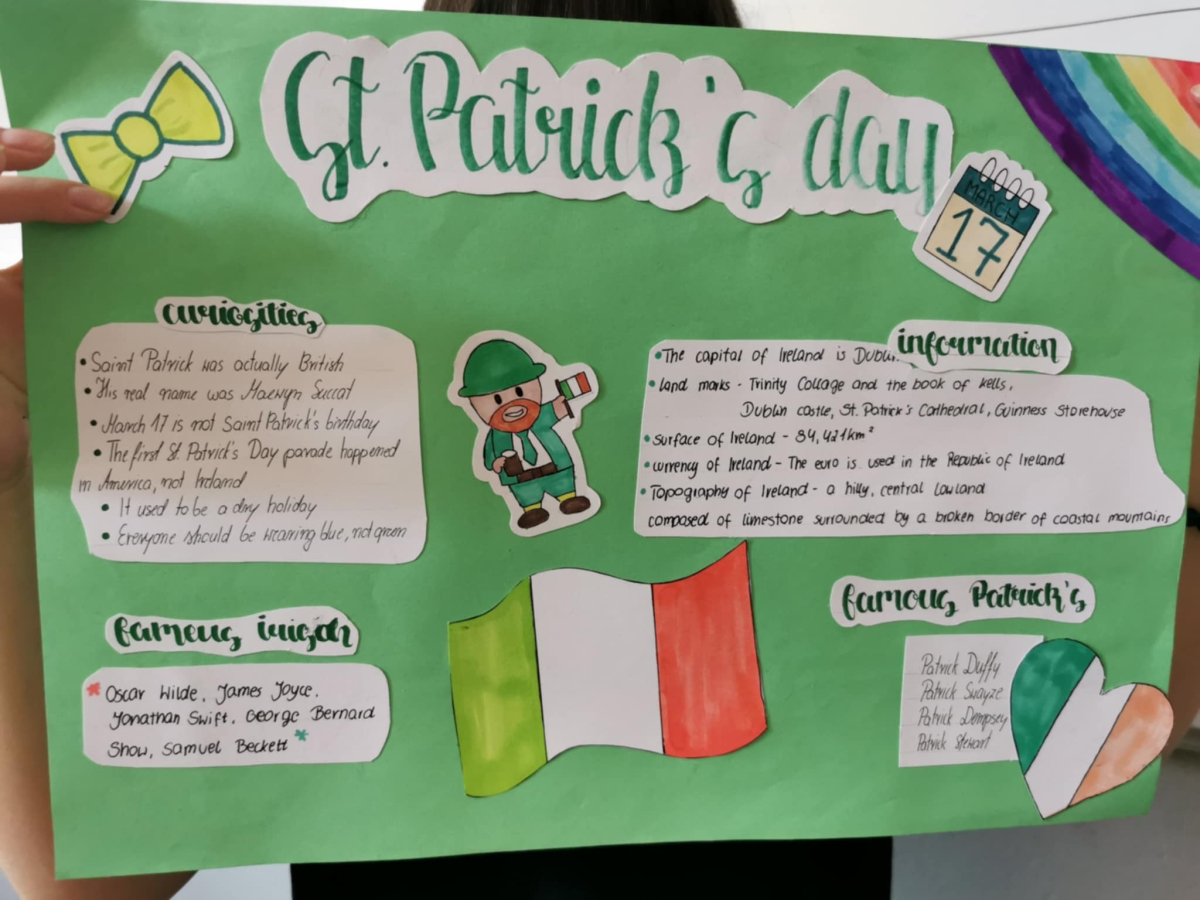 St. Patrick's day
MARCH
17
curiosities
• Saint Patrick was actually British
• His real name was Maewyn Succat
• March 17 is not Saint Patrick's birthday
• The first St. Patrick's Day parade happened
in America, not Ireland
• It used to be a dry holiday
• Everyone should be wearing blue, not green
information
• The capital of Ireland is Dublin
• land marks - Trinity Collage and the book of kells,
Dublin castle, St. Patrick's Cathedral, Guinness Storehouse
• surface of Ireland - 84,421km²
• currency of Ireland - The euro is used in the Republic of Ireland
• Topography of Ireland - a hilly, central lowland
composed of limestone surrounded by a broken border of coastal mountains
famous irish
* Oscar Wilde, James Joyce,
Jonathan Swift, George Bernard
Show, Samuel Beckett *
famous Patrick's
Patrick Duffy
Patrick Swayze
Patrick Dempsey
Patrick Stewart